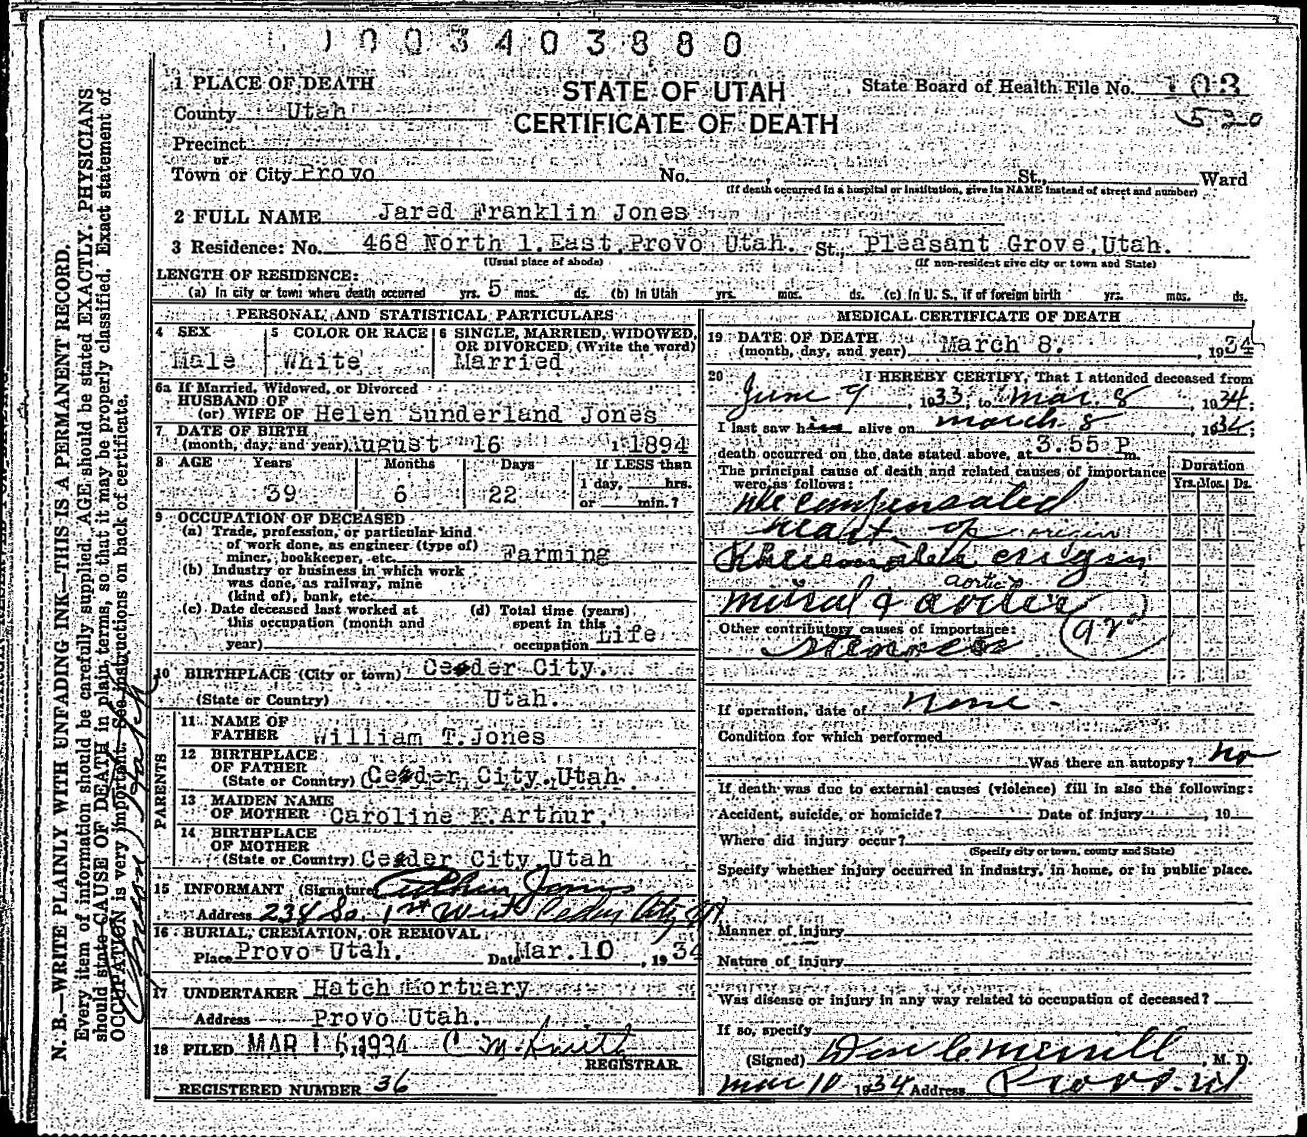 1003403880
1 PLACE OF DEATH
STATE OF UTAH
CERTIFICATE OF DEATH
State Board of Health File No. 103
520
County Utah
Precinct
or
Town or City Provo No. , St., Ward
(If death occurred in a hospital or institution, give its NAME instead of street and number)
2 FULL NAME Jared Franklin Jones
3 Residence: No. 468 North 1.East,Provo Utah. St., Pleasant Grove,Utah.
(Usual place of abode) (If non-resident give city or town and State)
LENGTH OF RESIDENCE:
(a) In city or town where death occurred yrs. 5 mos. ds. (b) In Utah yrs. mos. ds. (c) In U. S., if of foreign birth yrs. mos. ds.
PERSONAL AND STATISTICAL PARTICULARS
4 SEX 5 COLOR OR RACE 6 SINGLE, MARRIED, WIDOWED, OR DIVORCED (Write the word)
Male White Married
6a If Married, Widowed, or Divorced
HUSBAND OF
(or) WIFE OF Helen Sunderland Jones
7 DATE OF BIRTH
(month, day, and year) August 16 1894
8 AGE Years Months Days If LESS than
1 day, hrs.
or min.?
39 6 22
9 OCCUPATION OF DECEASED
(a) Trade, profession, or particular kind
of work done, as engineer (type of)
miner, bookkeeper, etc. Farming
(b) Industry or business in which work
was done, as railway, mine
(kind of), bank, etc.
(c) Date deceased last worked at
this occupation (month and
year)
(d) Total time (years)
spent in this
occupation Life
10 BIRTHPLACE (City or town) Ceder City.
(State or Country) Utah.
PARENTS
11 NAME OF
FATHER William T.Jones
12 BIRTHPLACE
OF FATHER
(State or Country) Ceder City.Utah.
13 MAIDEN NAME
OF MOTHER Caroline E.Arthur.
14 BIRTHPLACE
OF MOTHER
(State or Country) Ceder City Utah
15 INFORMANT (Signature) Jones
Address 238 So. 1st West Cedar City Ut.
16 BURIAL, CREMATION, OR REMOVAL
Place Provo Utah. Date Mar.10 , 1934
17 UNDERTAKER Hatch Mortuary
Address Provo Utah.
18 FILED MAR 16 1934 C M
REGISTRAR
REGISTERED NUMBER 36
MEDICAL CERTIFICATE OF DEATH
19 DATE OF DEATH
(month, day, and year) March 8. , 1934
20 I HEREBY CERTIFY, That I attended deceased from
June 9 , 1933, to Mar. 8 , 1934;
I last saw him alive on march 8 , 1934;
death occurred on the date stated above, at 3.55 P m.
The principal cause of death and related causes of importance
were as follows:
Duration
Yrs. Mos. Ds.
decompensated
heart of origin
Rheumatic origin
aortic
mitral & aortic
Other contributory causes of importance:
stenosis
(92)
If operation, date of None
Condition for which performed
Was there an autopsy? no
If death was due to external causes (violence) fill in also the following:
Accident, suicide, or homicide? Date of injury , 19
Where did injury occur?
(Specify city or town, county and State)
Specify whether injury occurred in industry, in home, or in public place.
Manner of injury
Nature of injury
Was disease or injury in any way related to occupation of deceased?
If so, specify
(Signed) Don C Merrill , M. D.
mar 10 1934 Address Provo Ut
N. B.—WRITE PLAINLY WITH UNFADING INK—THIS IS A PERMANENT RECORD.
Every item of information should be carefully supplied. AGE should be stated EXACTLY. PHYSICIANS
should state CAUSE OF DEATH in plain terms, so that it may be properly classified. Exact statement of
OCCUPATION is very important. See instructions on back of certificate.